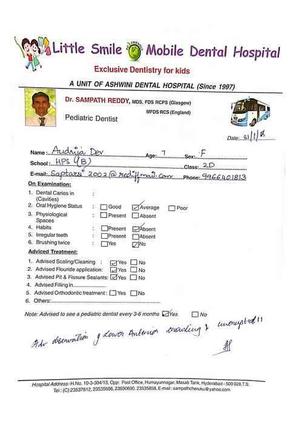 Little Smile Mobile Dental Hospital
Exclusive Dentistry for kids
A UNIT OF ASHWINI DENTAL HOSPITAL (Since 1997)
Dr. SAMPATH REDDY, MDS, FDS RCPS (Glasgow)
MFDS RCS (England)
Pediatric Dentist
Date:
Name: Audrija Dev Age: 7 Sex: F
School: HPS (B) Class: 2D
E-mail: Saptarsi2002@rediffmail.com Phone: 9966401813
On Examination:
1. Dental Caries in :
(Cavities)
2. Oral Hygiene Status : Good Average Poor
3. Physiological : Present Absent
Spaces
4. Habits : Present Absent
5. Irregular teeth : Present Absent
6. Brushing twice : Yes No
Adviced Treatment:
1. Advised Scaling/Cleaning : Yes No
2. Advised Flouride application: Yes No
3. Advised Pit & Fissure Sealants: Yes No
4. Advised Filling in
5. Advised Orthodontic treatment: Yes No
6. Others:
Note: Advised to see a pediatric dental every 3-6 months Yes No
Adv observation of Lower Anterior crowding &
Hospital Address: H.No. 10-3-304/13, Opp. Post Office, Humayunnagar, Masab Tank, Hyderabad - 500 028, T.S.
Tel.: (C) 23537812, 23535606, 23590690, 23535858, E-mail: sampathcheruku@yahoo.com